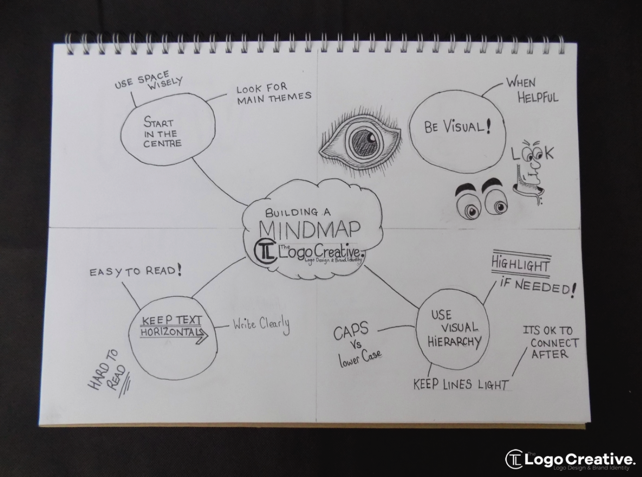 USE SPACE
WISELY
LOOK FOR
MAIN THEMES
START
IN THE
CENTRE
BE VISUAL!
WHEN
HELPFUL
LOOK
BUILDING A
MINDMAP
The
Logo Creative.
Logo Design & Brand Identity
EASY TO READ!
KEEP TEXT
HORIZONTAL
Write Clearly
HARD TO
READ
HIGHLIGHT
IF NEEDED!
USE
VISUAL
HIERARCHY
CAPS
Vs
lower Case
ITS OK TO
CONNECT
AFTER
KEEP LINES LIGHT
The
Logo Creative.
Logo Design & Brand Identity